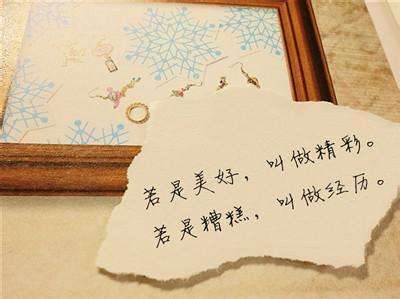 若是美好，叫做精彩。
若是糟糕，叫做经历。